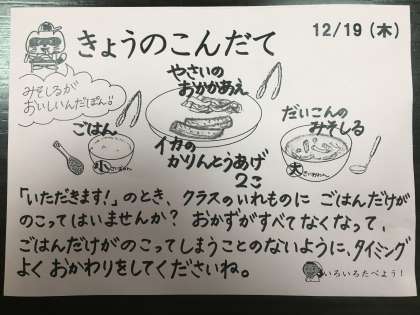 きょうのこんだて
12/19（木）
みそしるが
おいしいんだぽん!!
やさいの
おかかあえ
ごはん
小
イカの
かりんとうあげ
2こ
だいこんの
みそしる
大
「いただきます!」のとき、クラスのいれものに ごはんだけが
のこってはいませんか? おかずがすべてなくなって、
ごはんだけがのこってしまうことのないように、タイミング
よく おかわりをしてくださいね。
いろいろたべよう!